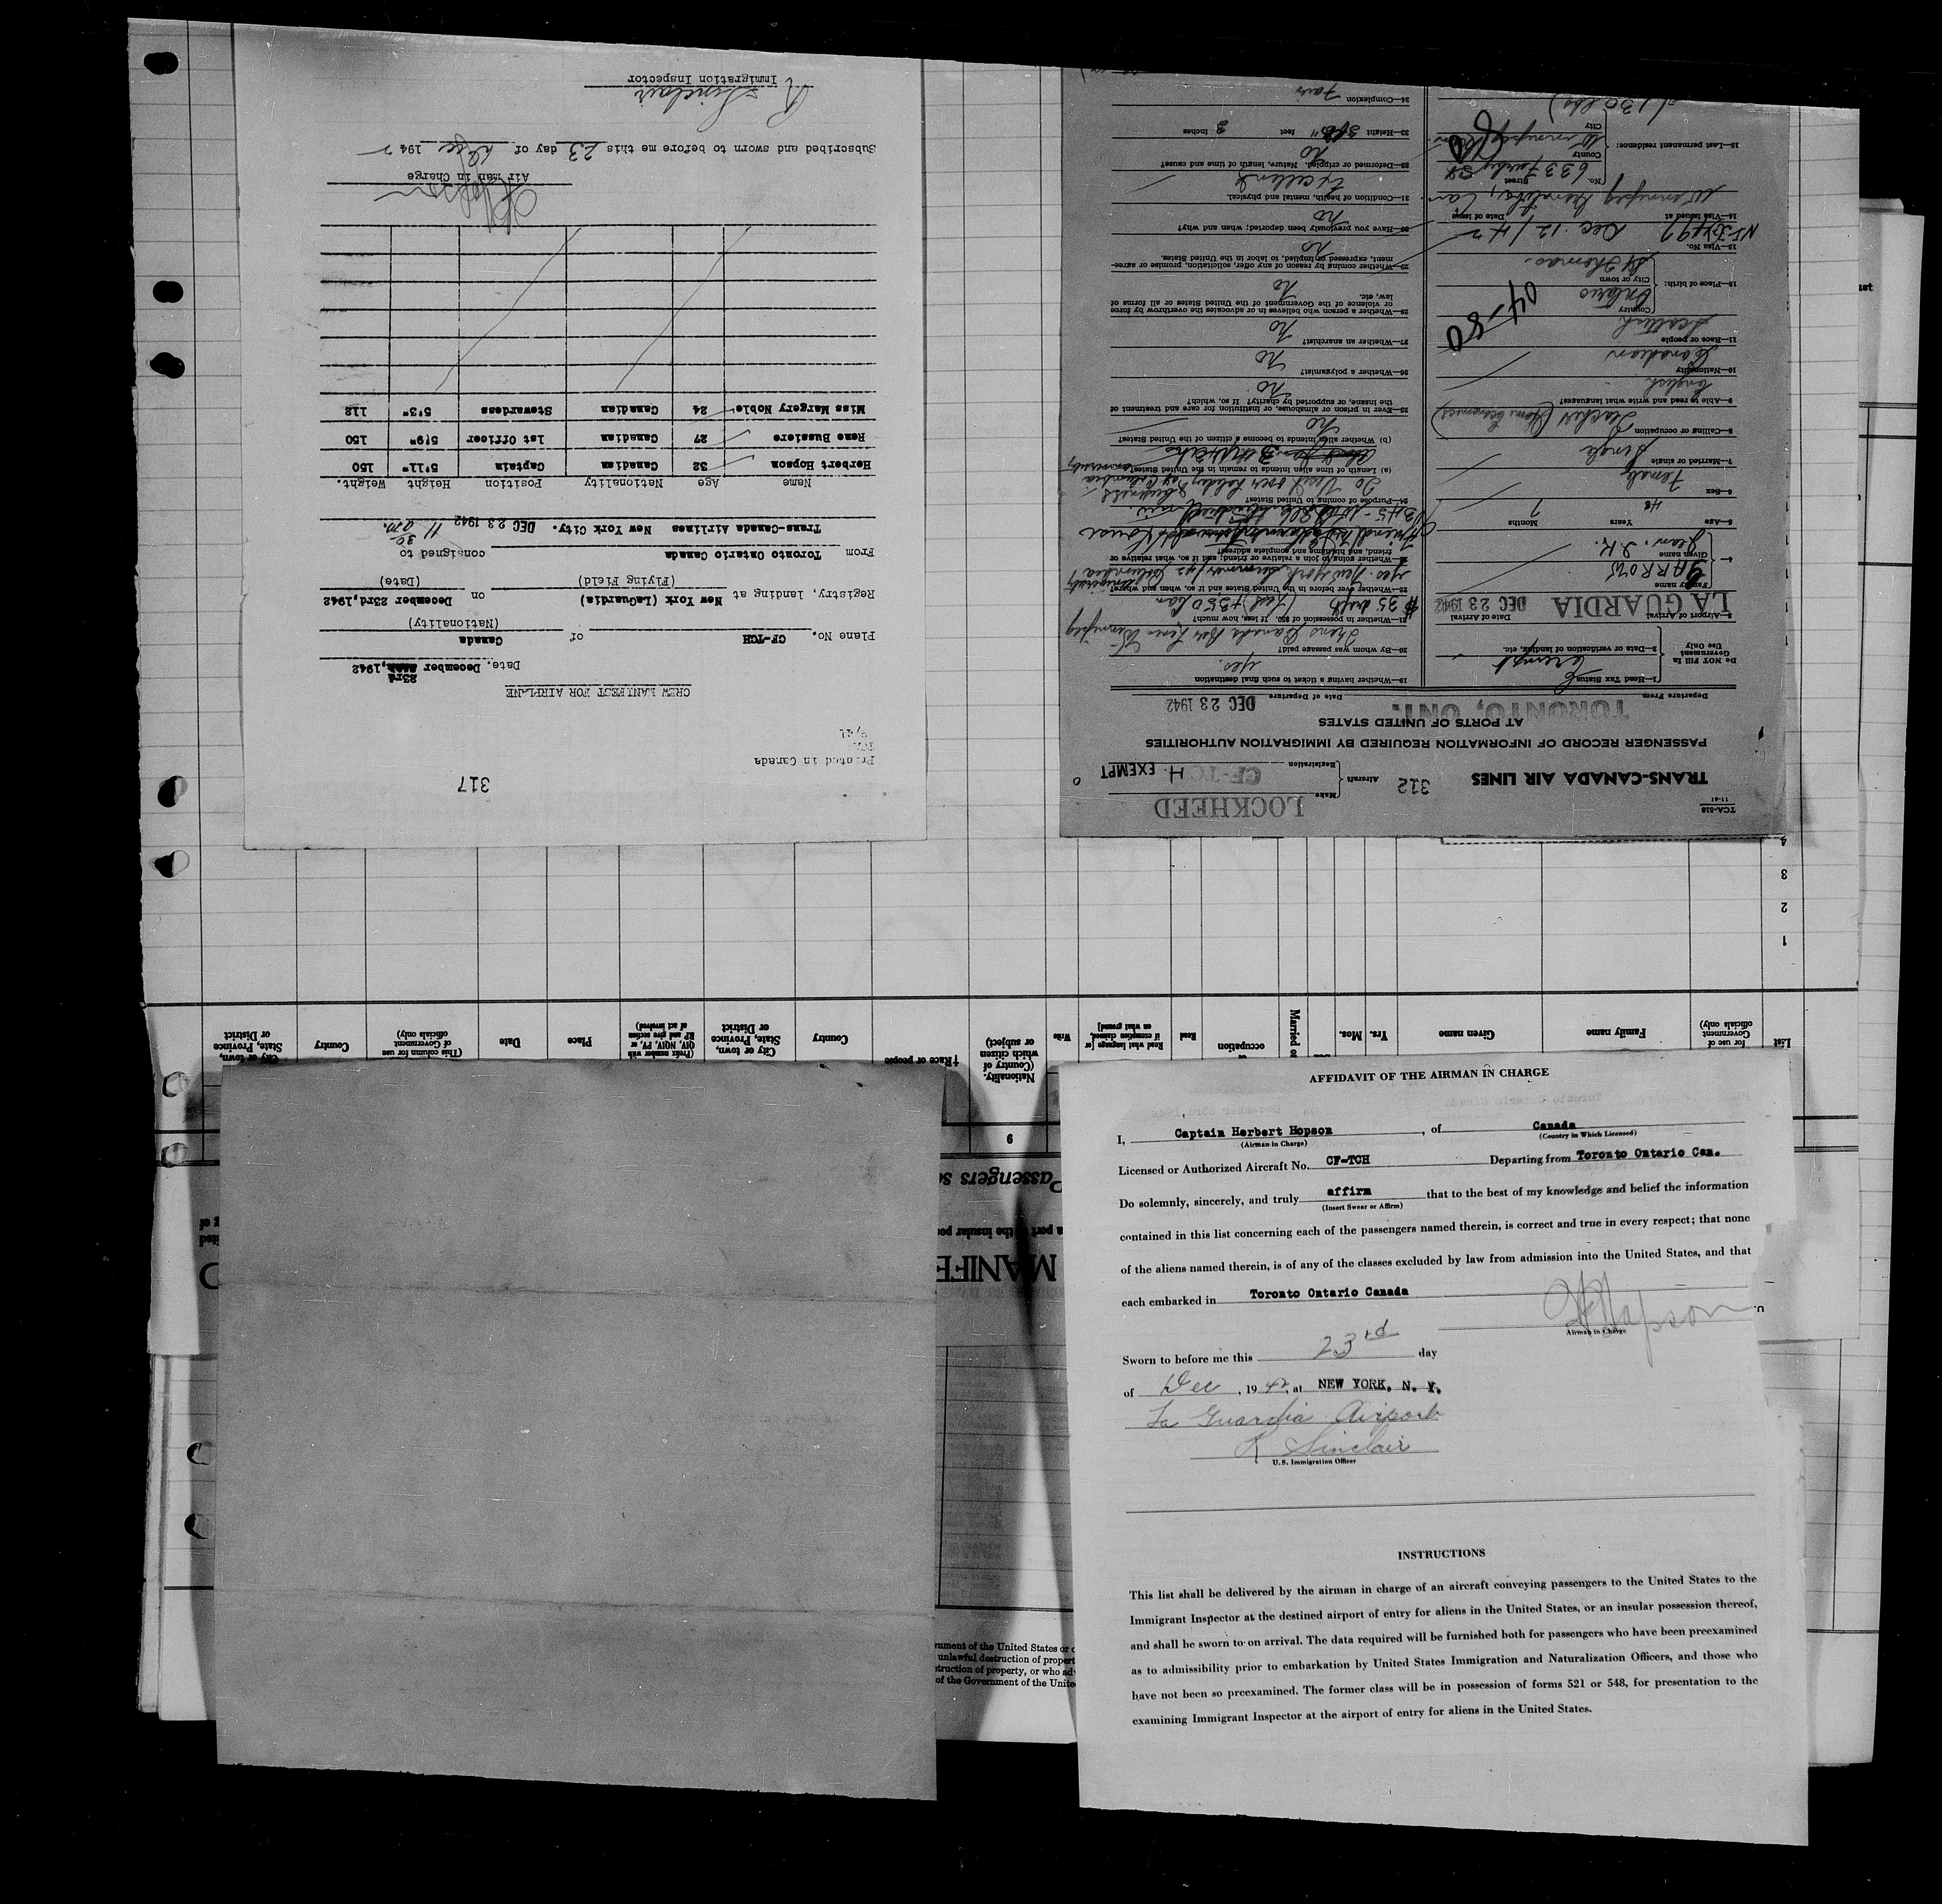 317
Printed in Canada
TCA
9/41
CREW MANIFEST FOR AIRPLANE
23rd
Date. December 1942
Plane No. CF-TCH of Canada
(Nationality)
Registry, landing at New York (LaGuardia) on December 23rd, 1942
(Flying Field) (Date)
From Toronto Ontario Canada consigned to
Trans-Canada Airlines New York City. DEC 23 1942 11 30 am.
Name Age Nationality Position Height Weight.
Herbert Hopson 32 Canadian Captain 5'11" 150
Rene Bussiere 27 Canadian 1st Officer 5'9" 150
Miss Margery Noble 24 Canadian Stewardess 5'3" 112
H Hopson
Air Man in Charge
Subscribed and sworn to before me this 23 day of Dec 1942
R Sinclair
Immigration Inspector
TCA-518
11-41
LOCKHEED
TRANS-CANADA AIR LINES 312 Aircraft Make
Registration CF-TCH. EXEMPT
PASSENGER RECORD OF INFORMATION REQUIRED BY IMMIGRATION AUTHORITIES
AT PORTS OF UNITED STATES
Departure From TORONTO, ONT. Date of Departure DEC 23 1942
Do NOT Fill In
Government
Use Only
1—Head Tax Status Exempt
2—Data or verification of landing, etc.
3—Airport of Arrival LA GUARDIA Date of Arrival DEC 23 1942
4— Family name YARROW
Given name Jean. I. K.
5—Age 48 Years 7 Months
6—Sex Female
7—Married or single Single
8—Calling or occupation Teacher (Home Economics)
9—Able to read and write what languages? English
10—Nationality Canadian
11—Race or people Scottish
12—Place of birth: Country Ontario
City or town St Thomas.
04-80
13—Visa No.
14—Visa issued at Date of issue Dec. 12/42
Winnipeg Manitoba, Can
15—Last permanent residence: No. 633 Street
County
City Winnipeg
130 lbs)
19—Whether having a ticket to such final destination yes.
20—By whom was passage paid? Trans Canada Air Lines Winnipeg
21—Whether in possession of $50. If less, how much?
22—Whether ever before in the United States and if so, when and where?
yes New York summer/42 Columbia University
23—Whether going to join a relative or friend; and if so, what relative or
friend, and his/her complete address?
24—Purpose of coming to United States?
(a) Length of time alien intends to remain in the United States?
(b) Whether alien intends to become a citizen of the United States?
no
25—Ever in prison or almshouse, or institution for care and treatment of
the insane, or supported by charity? If so, which?
no.
26—Whether a polygamist? no
27—Whether an anarchist? no
28—Whether a person who believes in or advocates the overthrow by force
or violence of the Government of the United States or all forms of
law, etc. no
29—Whether coming by reason of any offer, solicitation, promise or agree-
ment, expressed or implied, to labor in the United States. no
30—Have you previously been deported; when and why? no
31—Condition of health, mental and physical. Excellent
32—Deformed or crippled. Nature, length of time and cause? no
33—Height feet 3 inches
34—Complexion Fair
1
2
3
4
List
for use of
Government
officials only)
Family name
Given name
Yrs. Mos.
Married or
occupation
Read
Read what language [or
if exemption claimed,
on what ground]
Write
Nationality.
(Country of
which citizen
or subject)
†Race or people
Country
City or town,
State, Province
or District
(Prefix number with
QIV, NQIV, PV, or
RP and give section
of act involved)
Place
Date
(This column for use
of Government
officials only)
Country
City or town,
State, Province
or District
AFFIDAVIT OF THE AIRMAN IN CHARGE
I, Captain Herbert Hopson, of Canada
(Airman in Charge) (Country in Which Licensed)
Licensed or Authorized Aircraft No. CF-TCH Departing from Toronto Ontario Can.
Do solemnly, sincerely, and truly affirm that to the best of my knowledge and belief the information
(Insert Swear or Affirm)
contained in this list concerning each of the passengers named therein, is correct and true in every respect; that none
of the aliens named therein, is of any of the classes excluded by law from admission into the United States, and that
each embarked in Toronto Ontario Canada
H Hopson
Airman in Charge
Sworn to before me this 23rd day
of Dec, 1942, at NEW YORK, N. Y.
La Guardia Airport
R Sinclair
U.S. Immigration Officer
INSTRUCTIONS
This list shall be delivered by the airman in charge of an aircraft conveying passengers to the United States to the
Immigrant Inspector at the destined airport of entry for aliens in the United States, or an insular possession thereof,
and shall be sworn to on arrival. The data required will be furnished both for passengers who have been preexamined
as to admissibility prior to embarkation by United States Immigration and Naturalization Officers, and those who
have not been so preexamined. The former class will be in possession of forms 521 or 548, for presentation to the
examining Immigrant Inspector at the airport of entry for aliens in the United States.
6
Passengers s
a port of the insular pos
MANIFE
rnment of the United States or o
unlawful destruction of propert
struction of property, or who ad
of the Government of the Unite